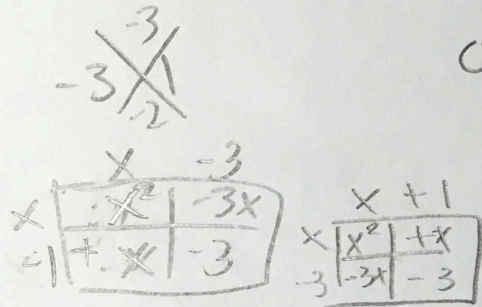 -3
-3 1
-2
x -3
x x² -3x
-1 + x -3
x + 1
x x² +x
-3 -3x -3